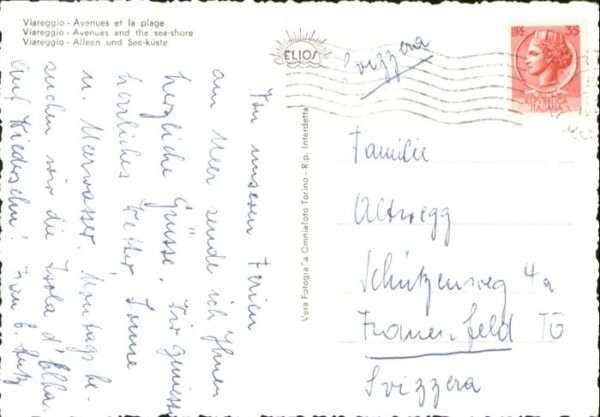 Viareggio - Avenues et la plage
Viareggio - Avenues and the sea-shore
Viareggio - Alleen und See-küste
ELIOS
Svizzera
35
Vera Fotografia Omniafoto Torino - Rip. Interdetta
Von unseren Ferien
am Meer sende ich Ihnen
herzliche Grüsse. Wir geniessen
herrliches Wetter, Sonne
u. Meerwasser. Montags be-
suchen wir die Isola d'Elba.
auf Wiedersehn!
Familie
Altwegg
Schützenweg 4a
Frauenfeld TG
Svizzera